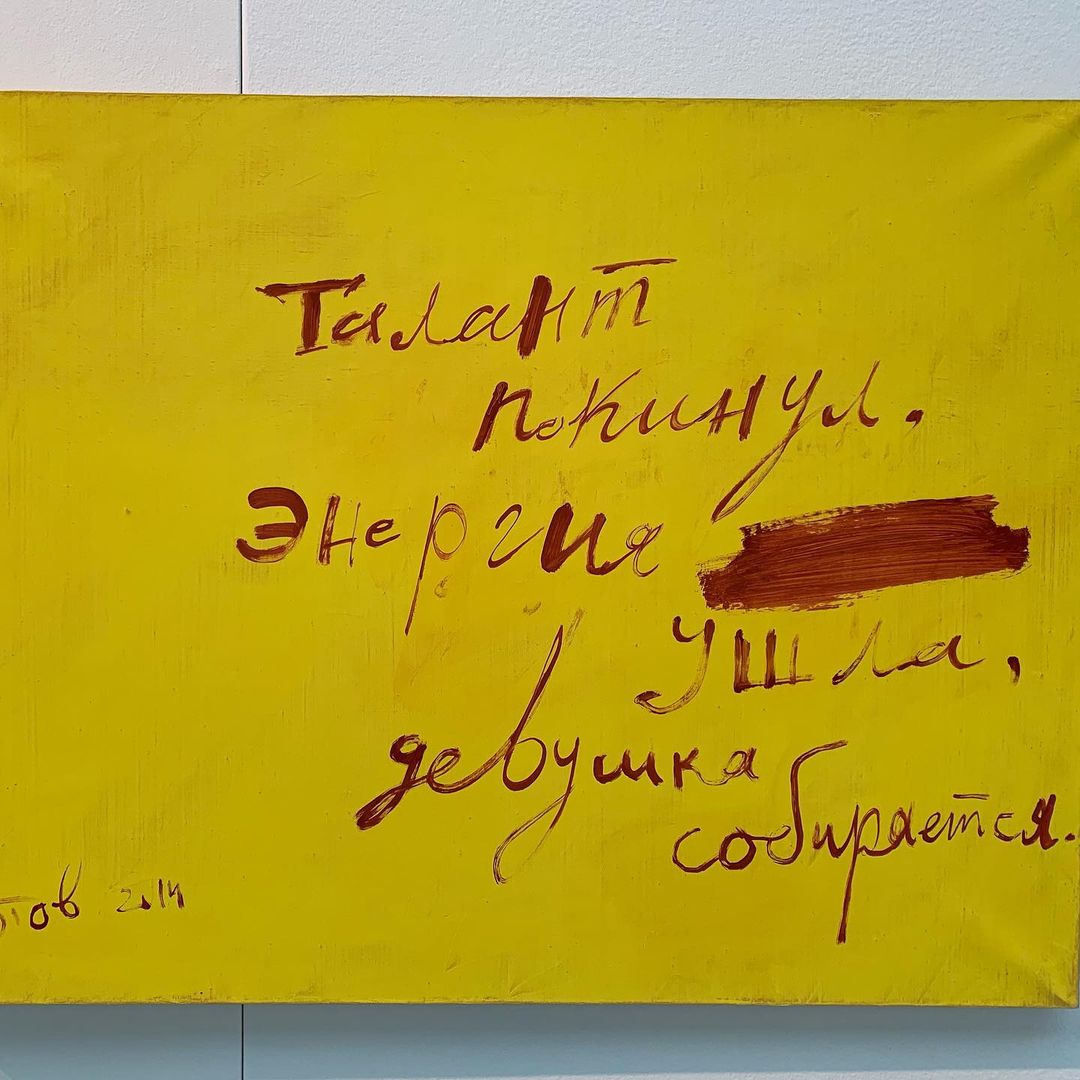 Талант
покинул.
Энергия
ушла,
девушка
собирается.
тов 2014